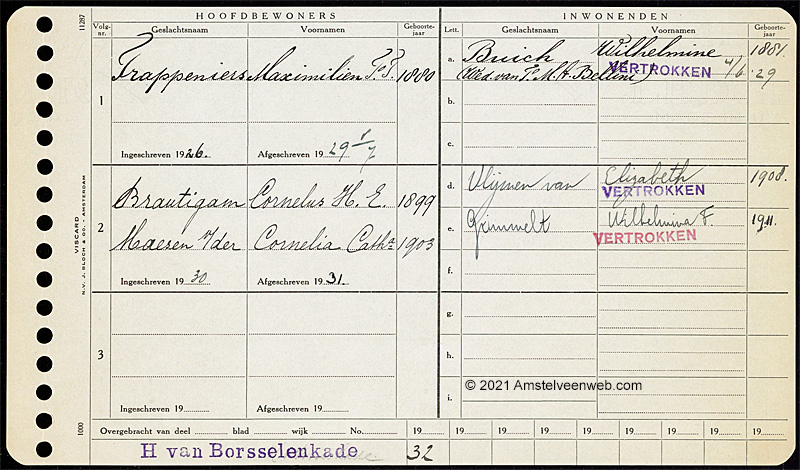 HOOFDBEWONERS
INWONENDEN
Volg-nr. Geslachtsnaam Voornamen Geboorte-jaar
Lett. Geslachtsnaam Voornamen Geboorte-jaar
11287
1
Trappeniers Maximilien 1880
Ingeschreven 1926. Afgeschreven 19 29 1/7
a. Buich Wilhelmine 1881.
(Wed. van P.M.H. Belline) VERTROKKEN 4/6 29
b.
c.
2
Brautigam Cornelus H. E. 1899
Maesen v/der Cornelia Cath. 1903
Ingeschreven 19 30 Afgeschreven 19 31.
d. Vlijmen van Elizabeth 1908.
VERTROKKEN
e. Grimmelt Wilhelmina F. 1911.
VERTROKKEN
f.
3
Ingeschreven 19 Afgeschreven 19
g.
h.
i.
© 2021 Amstelveenweb.com
VISCARD
N.V. J. BLOCH & CO. - AMSTERDAM
1000
Overgebracht van deel blad wijk No. 19 19 19 19 19 19 19 19 19
H van Borsselenkade 32